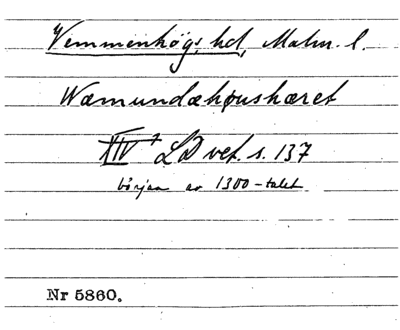 Vemmenhögs hd, Malm. l.
Wæmundæhøushæret
XIV LD vet. s. 137
början av 1300-talet
Nr 5860.